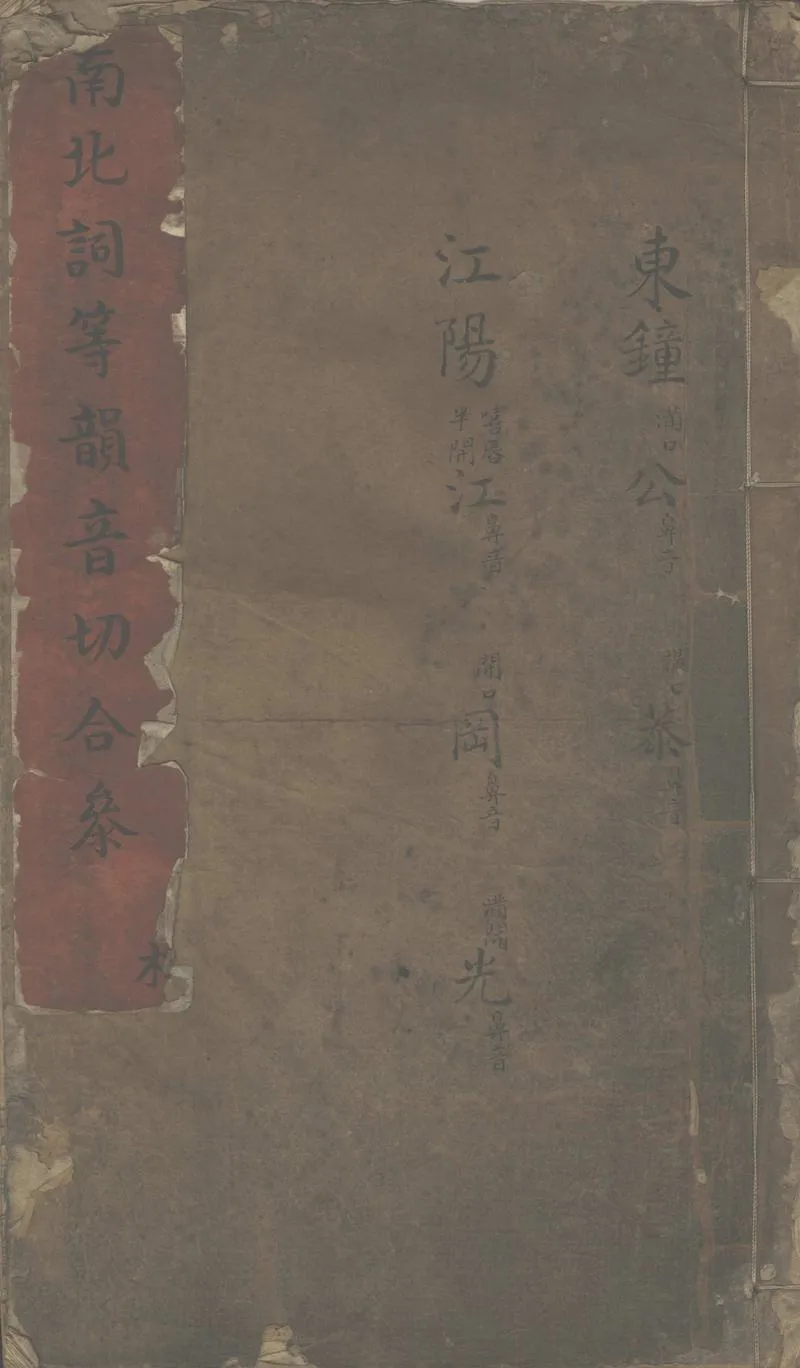 東鐘 滿口 公 鼻音 撮口 恭 鼻音
江陽 嘻唇半開 江 鼻音 開口 岡 鼻音 滿開 光 鼻音
南北詞等韻音切合叅